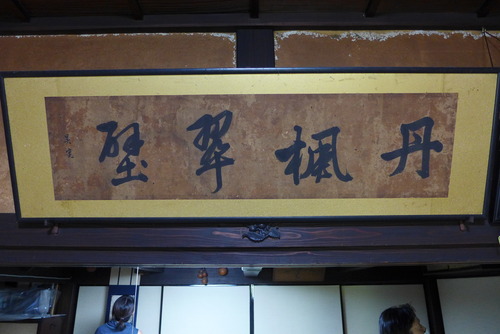 丹楓翠壁